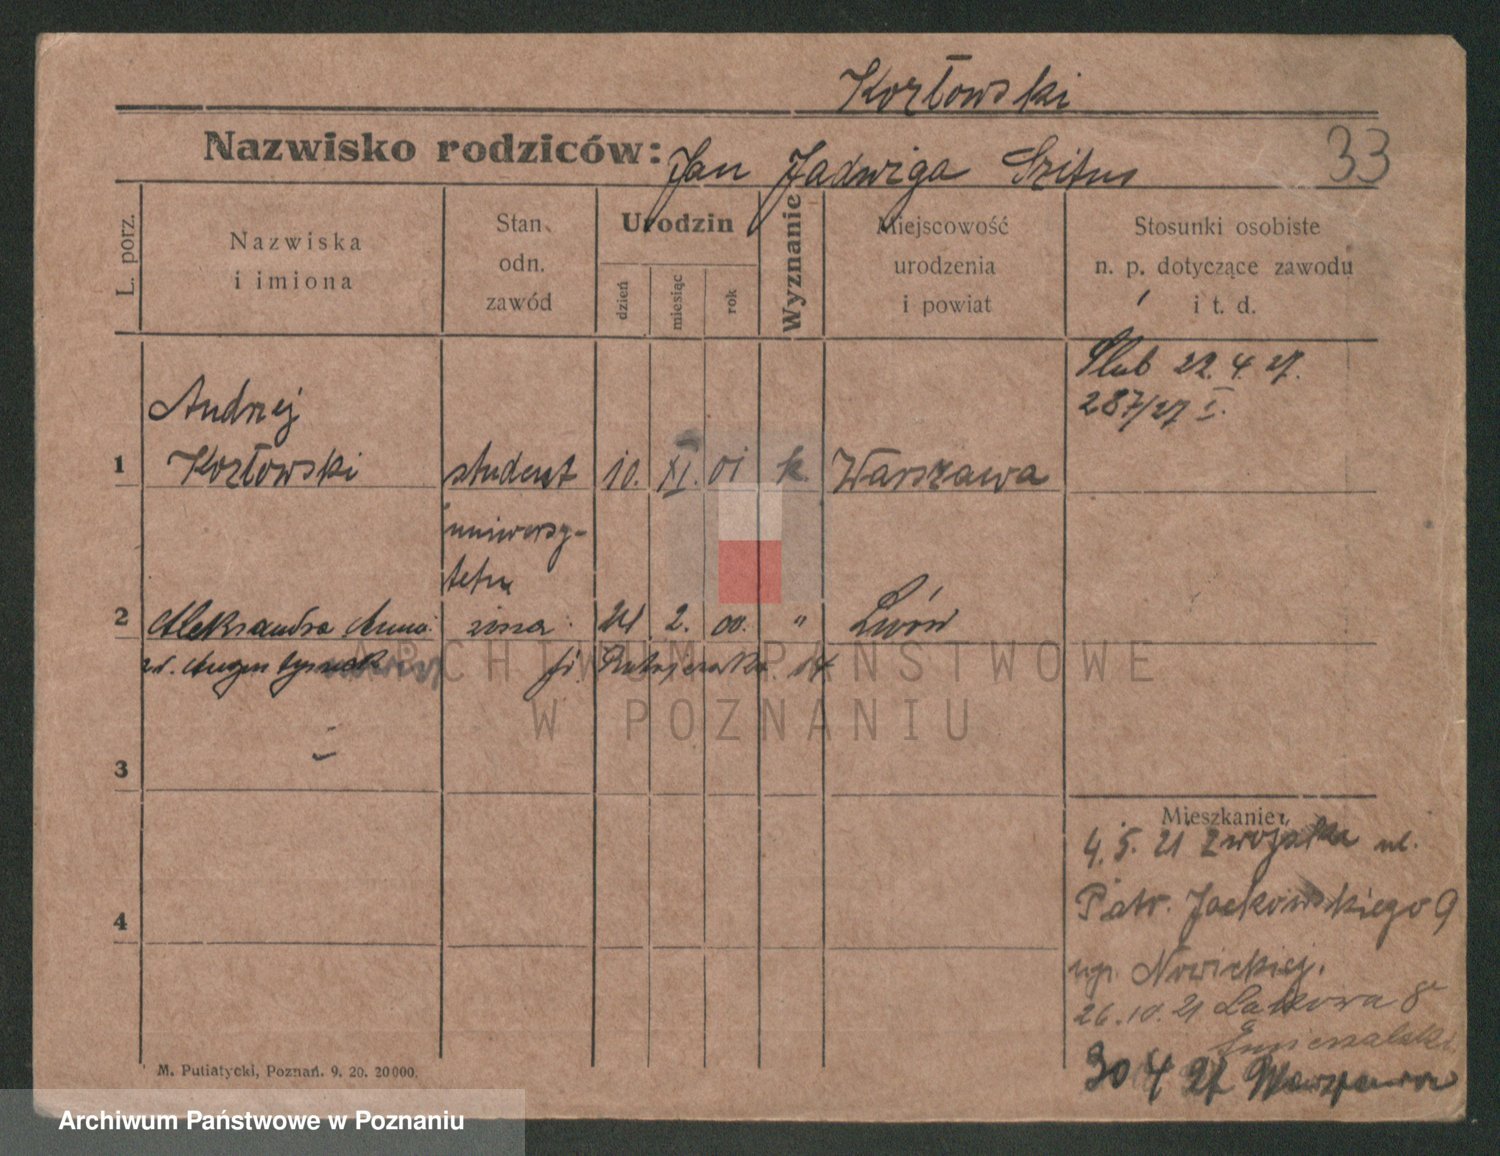 Kozłowski
Nazwisko rodziców: Jan Jadwiga
33
L. porz.
Nazwiska
i imiona
Stan.
odn.
zawód
Urodzin
dzień
miesiąc
rok
Wyznanie
Miejscowość
urodzenia
i powiat
Stosunki osobiste
n. p. dotyczące zawodu
i t. d.
Ślub 22. 4. 27.
287/27 I.
Andrzej
1 Kozłowski student 10. XI. 01 k. Warszawa
uniwersy-
tetu
2 Aleksandra Anna " Lwów
ARCHIWUM PAŃSTWOWE
W POZNANIU
3
4
Mieszkanie:
4. 5. 21 ul.
Patr. Jackowskiego 9
Nowickiej.
26. 10. 21 Łąkowa 8
30 4 27
M. Putiatycki, Poznań. 9. 20. 20000.
Archiwum Państwowe w Poznaniu